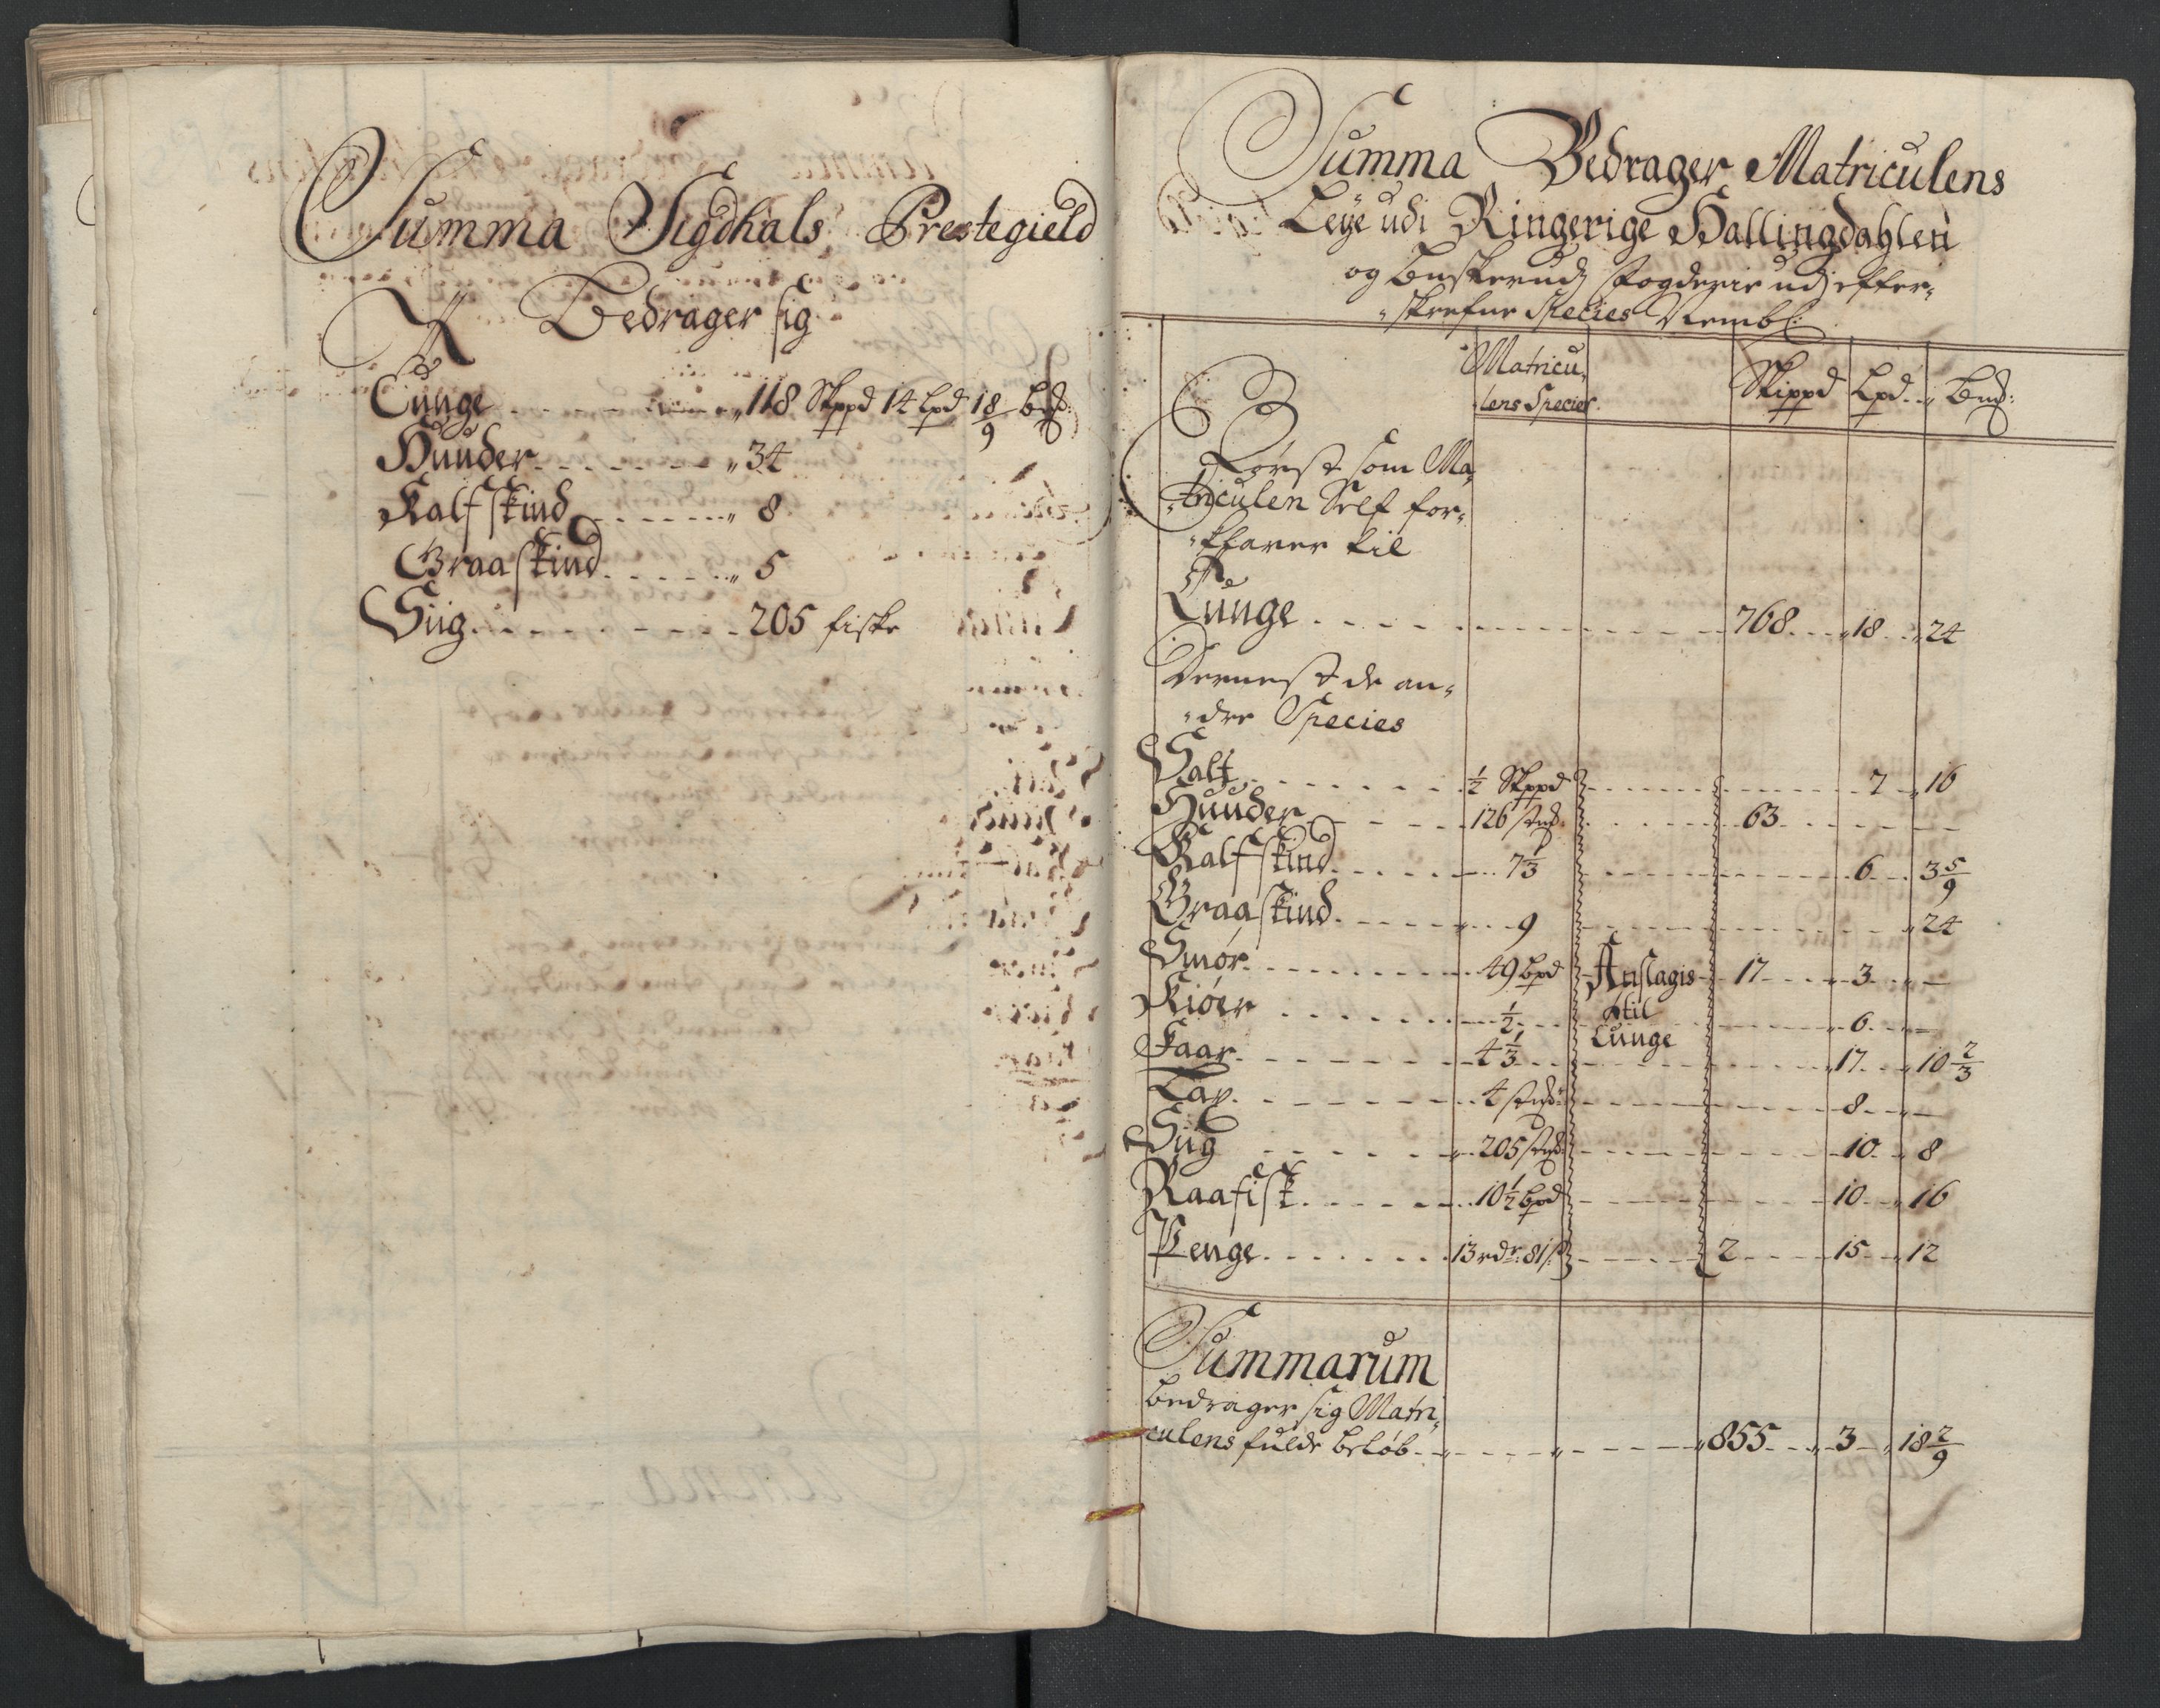 Summa Sigdhals Prestegield
Bedrager sig
Tunge 118 Skppd 14 Lpd 18/9 bd
Huuder 34
Kalfskind 8
Graaskind 5
Siig 205 fiske
Summa Bedrager Matriculens
Leÿe udi Ringerige Hallingdahlen
og Buskeruds fogderie udj effter-
skrefne Species Nembl:
Matricu-
lens Species Skippd Lpd
Først som Ma-
triculen Self for-
klarer til
Tunge 768 18 24
Dernest de an-
dre Species
Salt ½ Skppd 7 16
Huuder 126 stud 63
Kalfskind 7⅓ 6 3 5/9
Graaskind 9 24
Smør 49 bpd Anslagis 17 3
Kiøer ½ til 6
Tunge
Faar 4⅓ 17 10⅔
Tap 4 8
Siig 205 10 8
Raafisk 10½ bpd 10 16
Penge 13 rdr: 81 s 2 15 12
Summarum
bedrager sig Matri-
culens fulde beløb 855 3 18 2/9